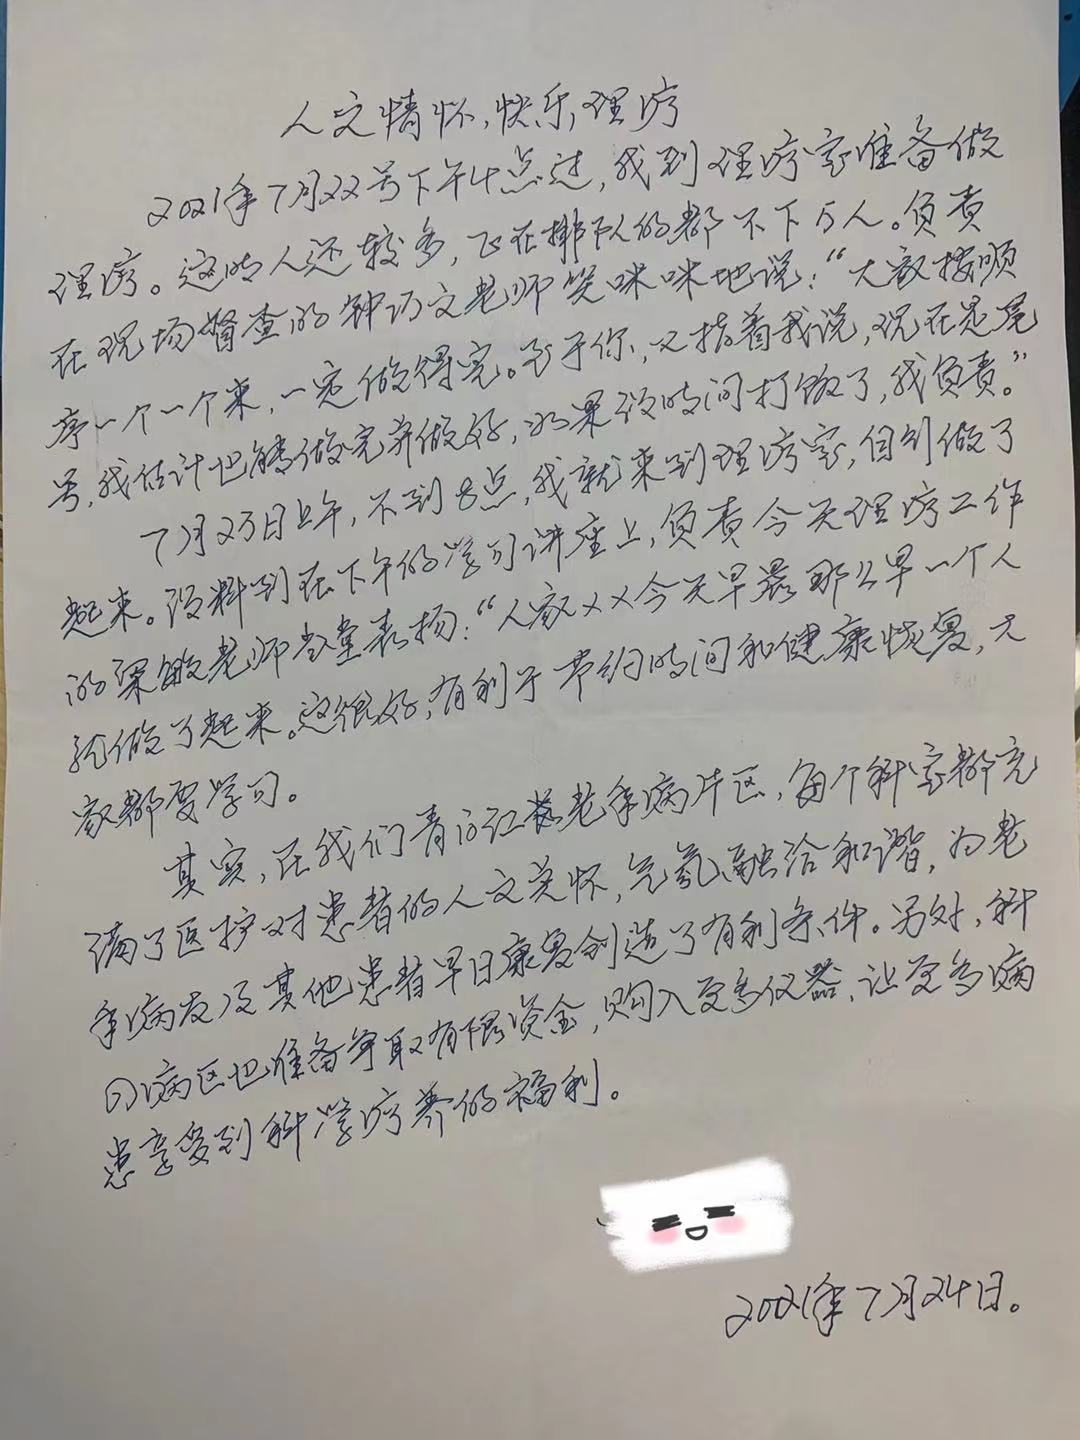 人文情怀,快乐理疗
2021年7月22号下午4点过,我到理疗室准备做
理疗。这时人还较多,飞在排队的都不下5人。负责
在现场督查的钟巧文老师笑咪咪地说:“大家按顺
序一个一个来,一定做得完。至于你,又指着我说,现在是尾
号,我估计也能够做完并做好,如果没时间打饭了,我负责。”
7月23日上午,不到8点,我就来到理疗室,自创做了
起来。没料到在下午的学习讲座上,负责今天理疗工作
的梁敏老师当堂表扬:“人家××今天早晨那么早一个人
就做了起来。这很好,有利于节约时间和健康恢复,大
家都要学习。
其实,在我们青江老年病片区,每个科室都充
满了医护对患者的人文关怀,气氛融洽和谐,为老
年病友及其他患者早日康复创造了有利条件。另外,科
病区也准备争取有限资金,购入更多仪器,让更多病
患享受到科学疗养的福利。
2021年7月24日。